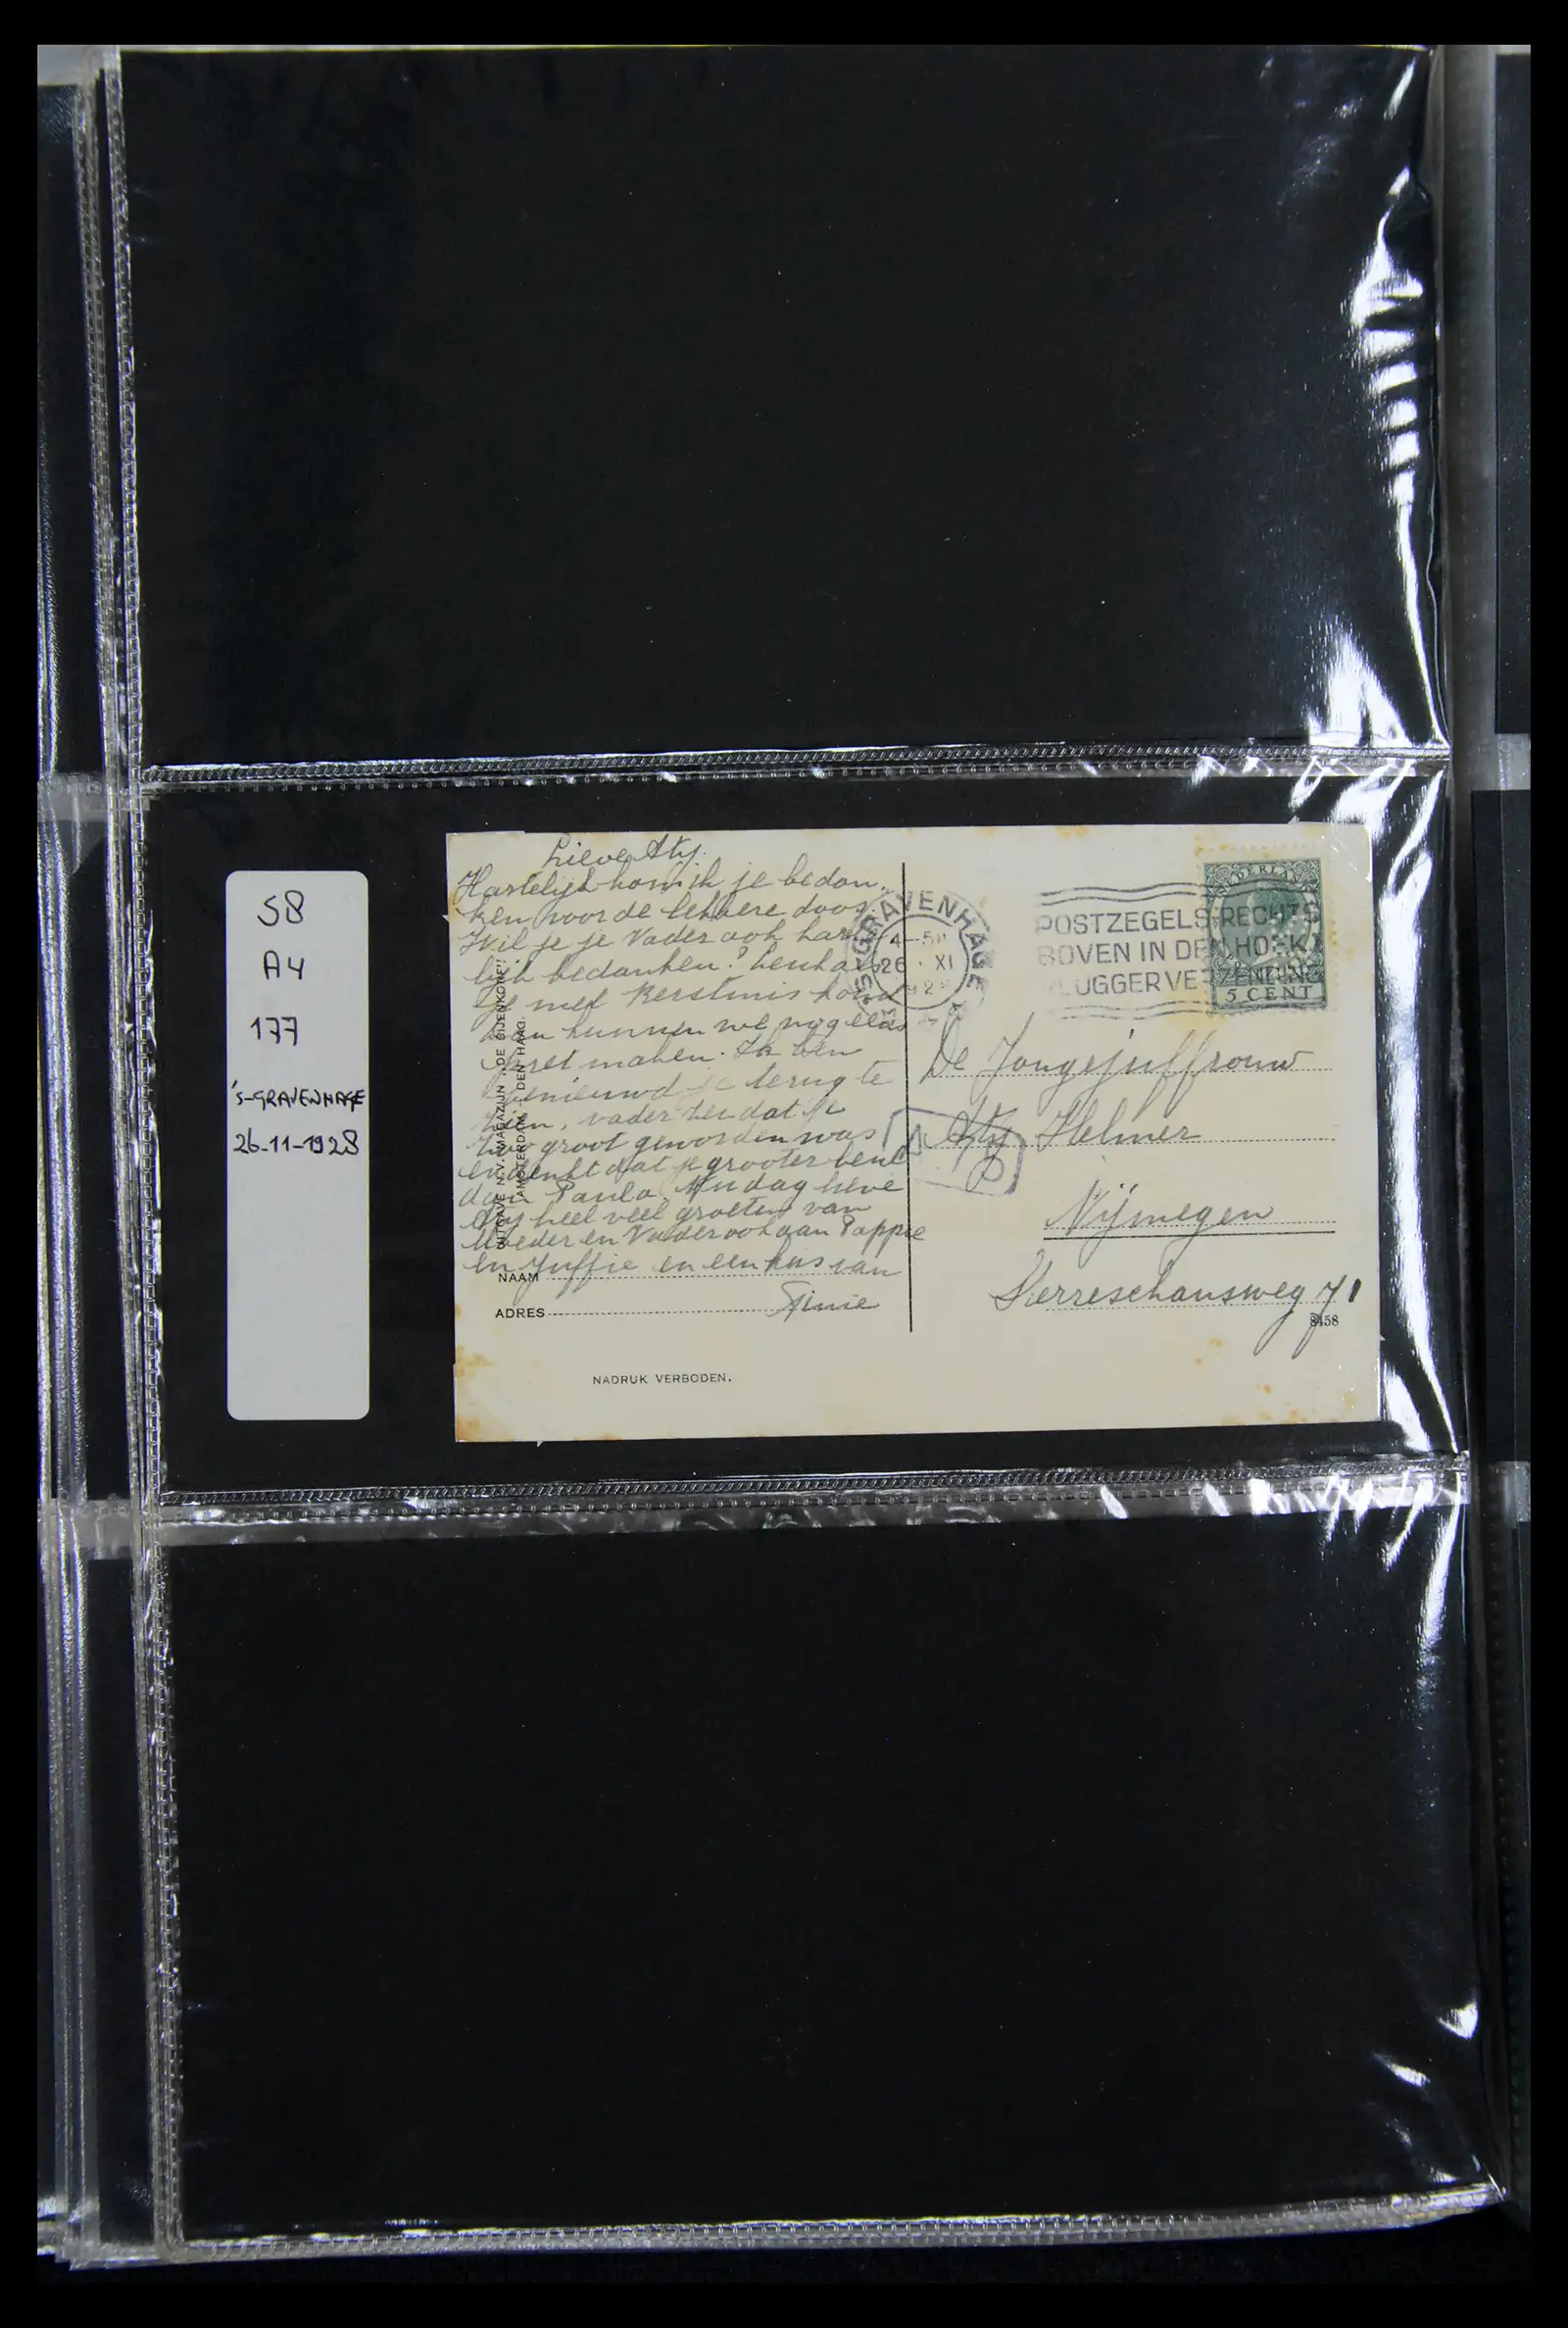 S8
A4
177
'S-GRAVENHAGE
26-11-1928
Lieve Aty.
Hartelijk kom ik je bedan-
ken voor de lekkere doos.
Wil je je Vader ook harte
lijk bedanken?
je met Kerstmis
dan kunnen we nog eens
pret maken. Ik ben
benieuwd je terug te
zien, vader zei dat je
zoo groot geworden was
en denkt dat je grooter bent
dan Paula. Nu dag lieve
Aty heel veel groeten van
Moeder en Vader ook aan Pappie
en Juffie en een kus van
NAAM
ADRES
UITGAVE N.V. MAGAZIJN "DE BIJENKORF"
AMSTERDAM - DEN HAAG.
NADRUK VERBODEN.
'S-GRAVENHAGE
26 XI
POSTZEGELS RECHTS
BOVEN IN DEN HOEK
VLUGGER VERZENDING
NEDERLAND
5 CENT
De Jongejuffrouw
Aty Helmer
Nijmegen
Sterreschansweg 71
8458